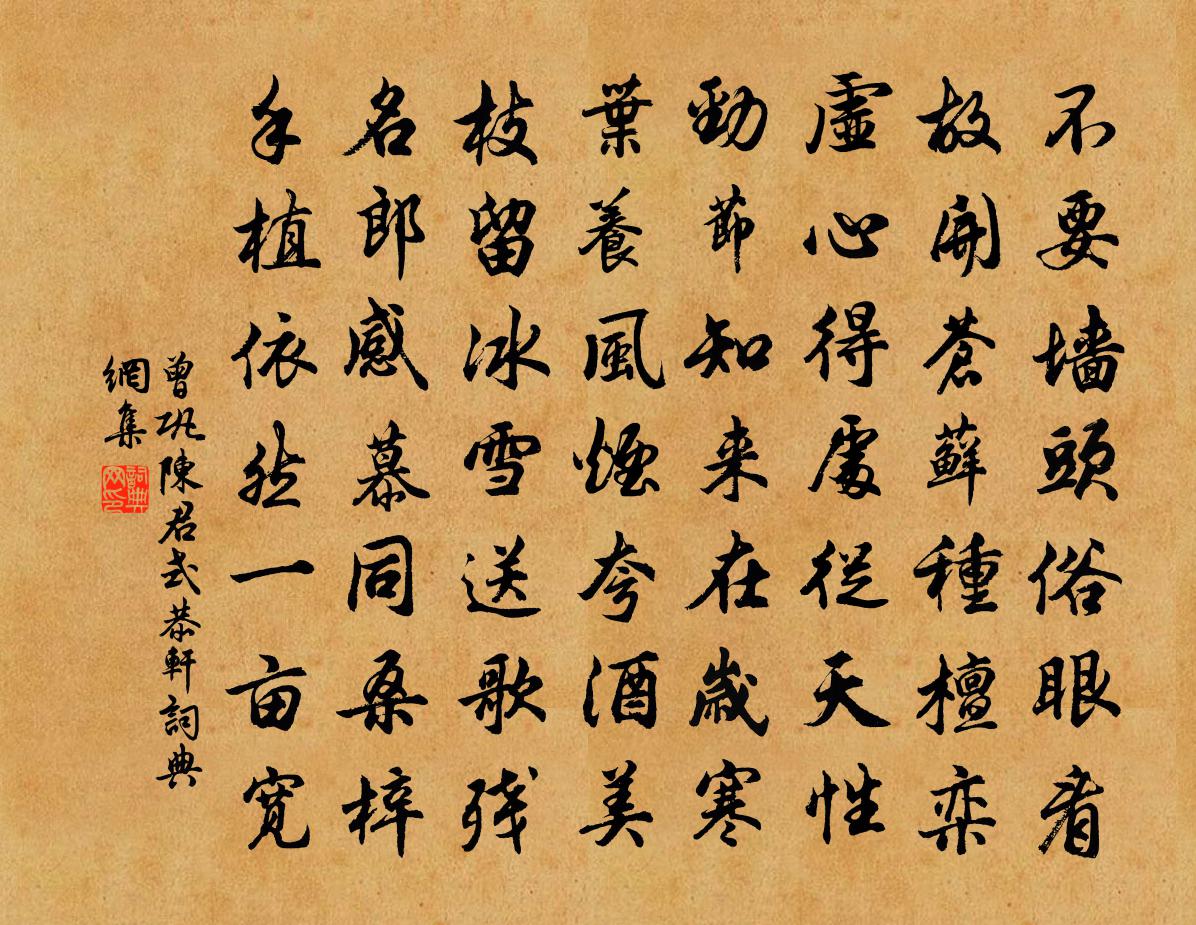 不要墙頭俗眼看
故開蒼蘚種檀欒
虛心得處從天性
勁節知来在歲寒
葉養風煙夸酒美
枝留冰雪送歌残
名郎感慕同桑梓
手植依然一亩寬
曾巩陳君式恭軒詞典
網集
詞典
网印